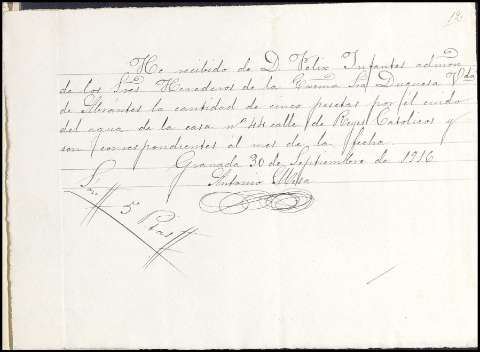 12.
He recibido de D. Felix Infantes admor
de los Sres Herederos de la Excma Sra Duquesa Vda
de Abrantes la cantidad de cinco pesetas por el cuido
del agua de la casa nº 44 calle de Reyes Catolicos y
son correspondientes al mes de la fecha.
Granada 30 de Septiembre de 1916
Antonio Mesa
Son 5 Ptas